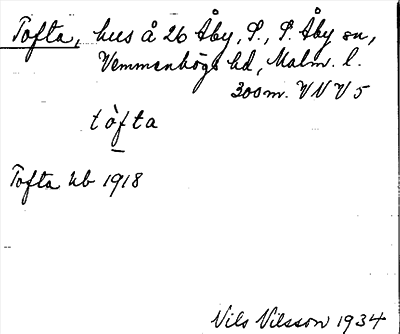 Tofta, hus å 26 Åby, S., S. Åby sn,
Vemmenhögs hd, Malm. l.
300 m. V N V 5
tòfta
Tofta kb 1918
Nils Nilsson 1934